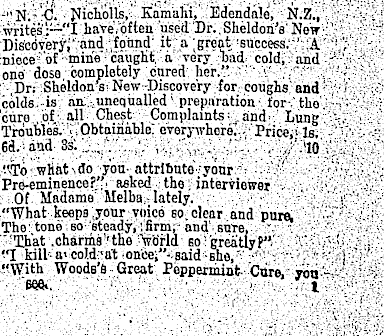 "N. C. Nicholls, Kamahi, Edendale, N.Z.,
writes:—"I have often used Dr. Sheldon's New
Discovery, and found it a great success. A
niece of mine caught a very bad cold, and
one dose completely cured her."
Dr. Sheldon's New Discovery for coughs and
colds is an unequalled preparation for the
cure of all Chest Complaints and Lung
Troubles. Obtainable everywhere. Price, 1s.
6d. and 3s. 10
"To what do you attribute your
Pre-eminence?" asked the interviewer
Of Madame Melba lately.
"What keeps your voice so clear and pure,
The tone so steady, firm, and sure,
That charms the world so greatly?"
"I kill a cold at once," said she,
"With Woods's Great Peppermint Cure, you
see. 1